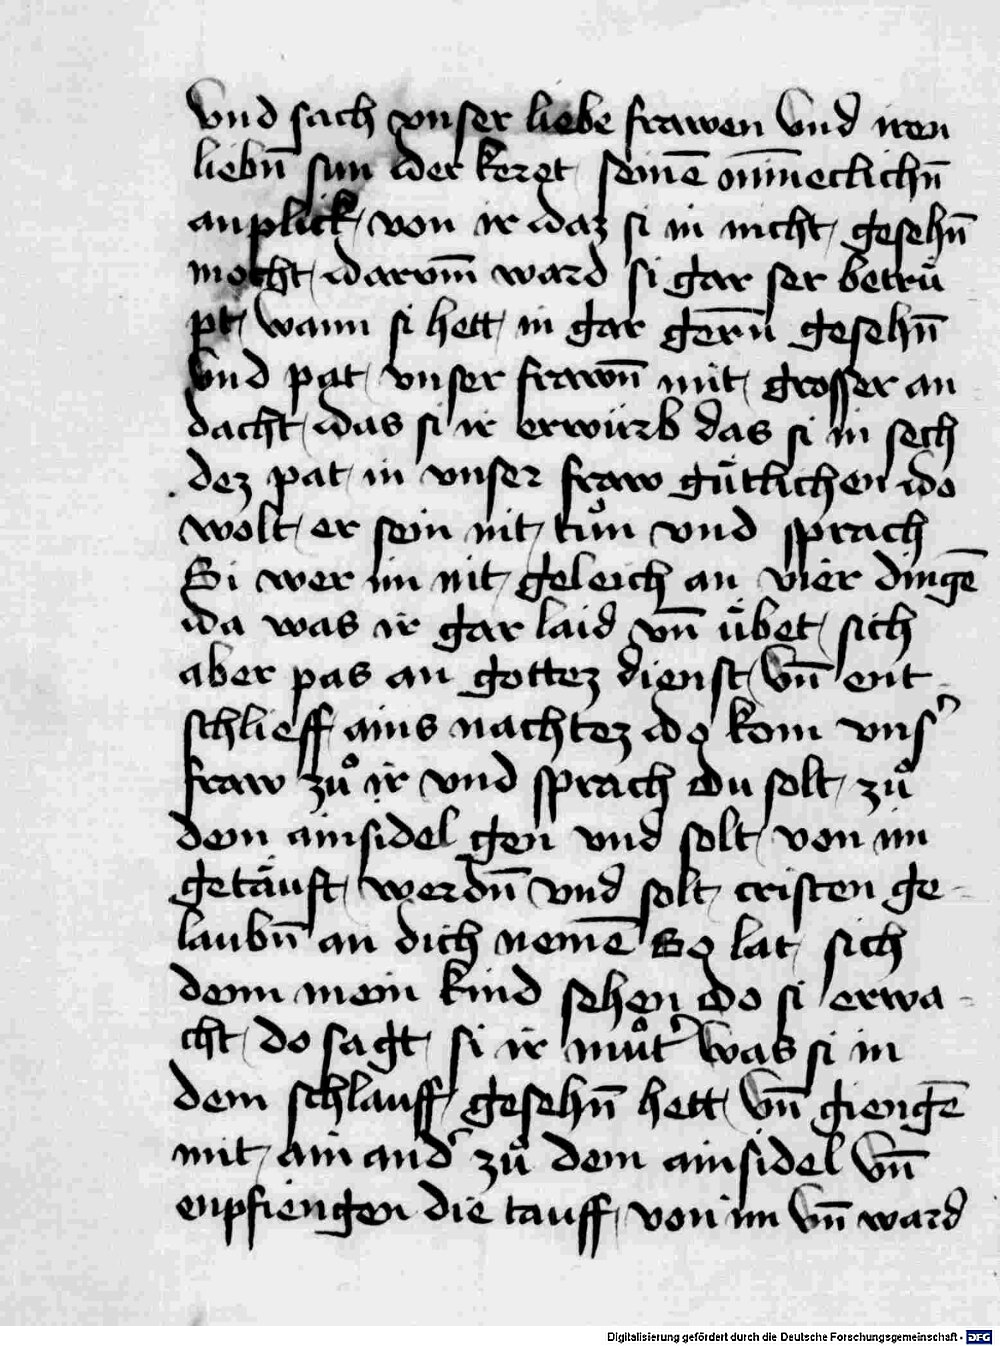 vnd sach vnser liebe frawen vnd iren
liebn̄ sun der keret seinē mīnneclichn̄
anplick von ir daz si in nicht gesehn̄
mocht darvm̄ ward si gar ser betrü
pt wann si hett in gar gern̄ gesehn̄
vnd pat vnser frawn̄ mit grosser an
dacht das si ir erwürb das si in sech
dez pat in vnser fraw gütlichen do
wolt er sein nit tůn vnd sprach
Si wer im nit geleich an vier dingē
da was ir gar laid vn̄ übet sich
aber pas an gottez dienst vn̄ ent
schlieff ains nachtez do kom vns͛
fraw zů ir vnd sprach du solt zů
dem ainsidel gen vnd solt von im
getäuft werdn̄ vnd solt cristen ge-
laubn̄ an dich nemē So lat sich
denn mein kind sehen do si erwa-
cht do sagt si ir můt͛ was si in
dem schlauff gesehn̄ hett vn̄ giengē
mit ain and͛ zů dem ainsidel vn̄
enpfiengen die tauff von im vn̄ ward
Digitalisierung gefördert durch die Deutsche Forschungsgemeinschaft - DFG